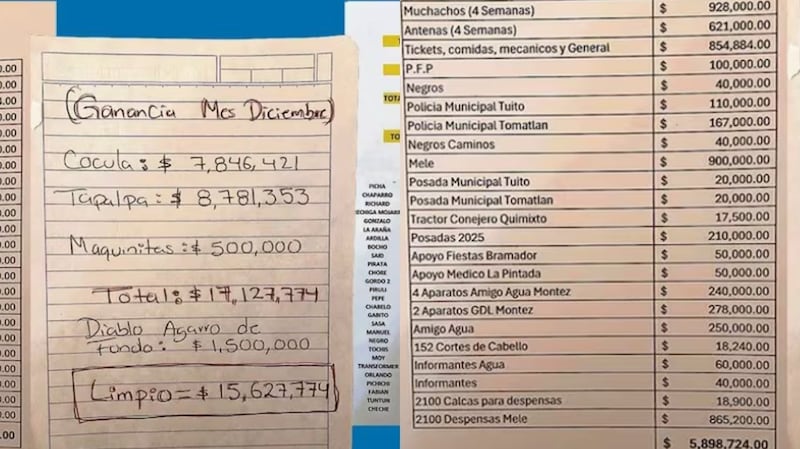 (Ganancia Mes Diciembre)
Cocula: $ 7,846,421
Tapalpa: $ 8,781,353
Maquinitas: $ 500,000
Total: $ 17,127,774
Diablo Agarro de
fondo: $ 1,500,000
Limpio = $ 15,627,774
TOTA
TO
PICHA
CHAPARRO
RICHARD
GONZALO
LA ARAÑA
ARDILLA
BOCHO
SAID
PIRATA
CHORE
GORDO 2
PIRULI
PEPE
CHABELO
GABITO
SASA
MANUEL
NEGRO
TOCHIS
MOY
TRANSFORMER
ORLANDO
PICHICHI
FABIAN
TUNTUN
CHECHE
Muchachos (4 Semanas) $ 928,000.00
Antenas (4 Semanas) $ 621,000.00
Tickets, comidas, mecanicos y General $ 854,884.00
P.F.P $ 100,000.00
Negros $ 40,000.00
Policia Municipal Tuito $ 110,000.00
Policia Municipal Tomatlan $ 167,000.00
Negros Caminos $ 40,000.00
Mele $ 900,000.00
Posada Municipal Tuito $ 20,000.00
Posada Municipal Tomatlan $ 20,000.00
Tractor Conejero Quimixto $ 17,500.00
Posadas 2025 $ 210,000.00
Apoyo Fiestas Bramador $ 50,000.00
Apoyo Medico La Pintada $ 50,000.00
4 Aparatos Amigo Agua Montez $ 240,000.00
2 Aparatos GDL Montez $ 278,000.00
Amigo Agua $ 250,000.00
152 Cortes de Cabello $ 18,240.00
Informantes Agua $ 60,000.00
Informantes $ 40,000.00
2100 Calcas para despensas $ 18,900.00
2100 Despensas Mele $ 865,200.00
$ 5,898,724.00